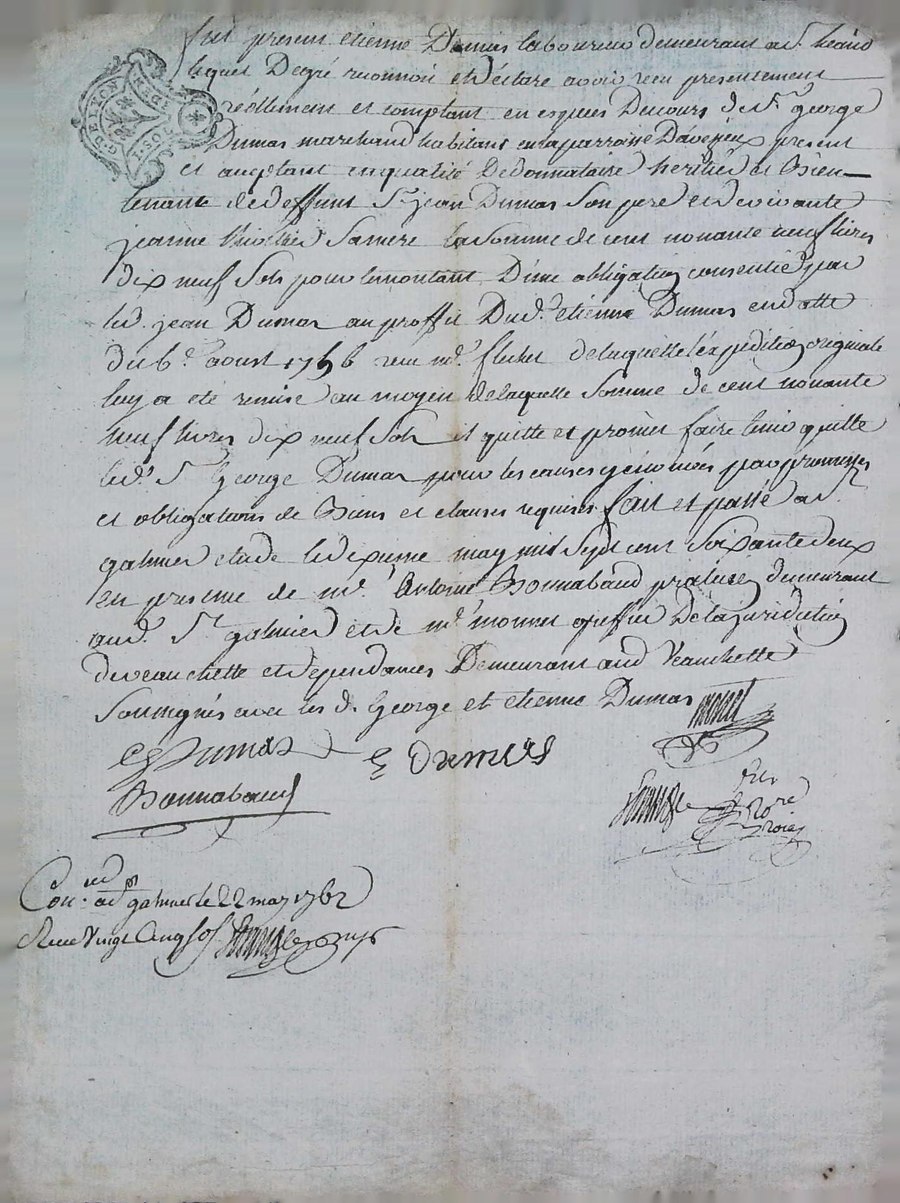 fut present etienne Dumas laboureur demeurant a St heand
lequel Degré reconnoit et déclare avoir recu presentement
réellement et comptant en especes Decours de Sr george
Dumas marchand habitant en la parroisse Daveizieux present
et acceptant en qualité De donnataire heritier et Bien
tenant de deffunt Sr jean Dumas son pere et de vivante
jeanne sa mere la somme de cent nonante neuf livres
dix neuf sols pour le montant D'une obligation consentie par
led. jean Dumas au proffit Dud. etienne Dumas en datte
du 6e aoust 1756 recu me de laquelle l'expedition originale
luy a été remise au moyen de laquelle somme de cent nonante
neuf livres dix neuf sols il quitte et promet faire tenir quitte
led. Sr George Dumas pour les causes y enoncées par promesses
et obligations de Biens et clauses requises fait et passé a St
galmier etude le dixieme may mil sept cent soixante deux
en presence de me Antoine Bonnabaud praticien demeurant
aud. St galmier et de me monnet greffier De la juridiction
de veauchette et dependances Demeurant aud Veauchette
Soussignés avec les d. George et etienne Dumas
monet
G Dumas E Dumas
Bonnabaud
nore
roial
Con. aud St galmier le 22 may 1762
Recu Vingt Cinq sols